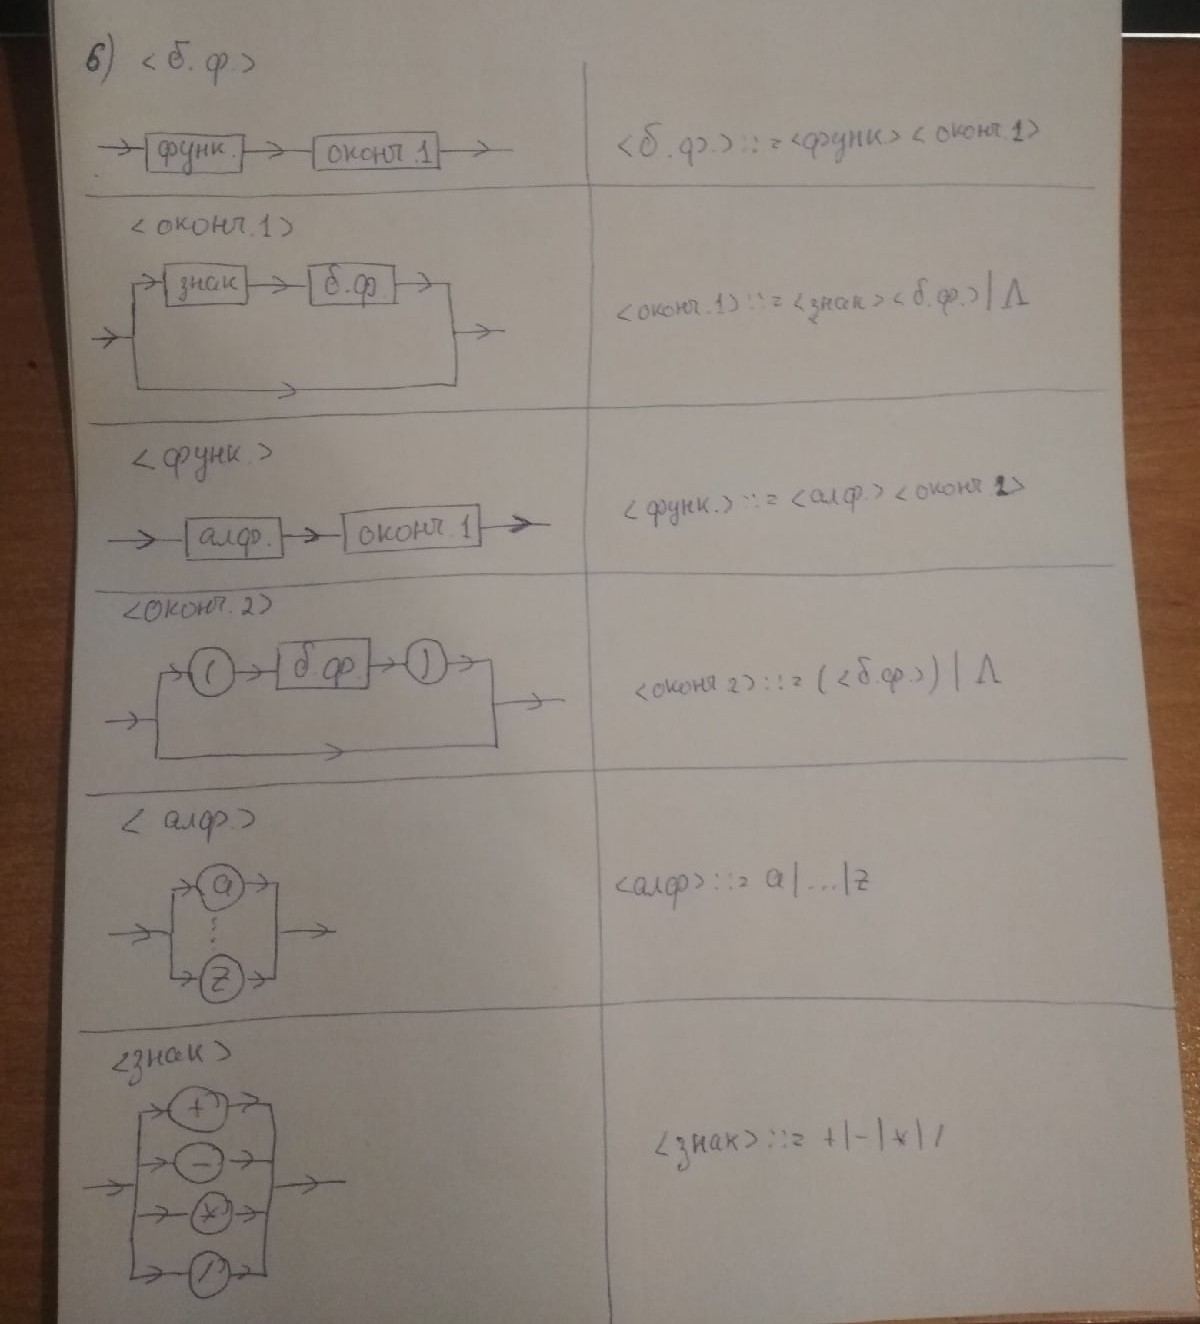 6) <б. ф.>
функ. оконч.1
<б.ф.>::=<функ><оконч.1>
<оконч.1>
знак б.ф
<оконч.1>::=<знак><б.ф.>|Λ
<функ.>
алф. оконч.1
<функ.>::=<алф.><оконч.2>
<оконч.2>
( б.ф. )
<оконч 2>::=(<б.ф.>)|Λ
<алф.>
a
z
<алф>::= a|...|z
<знак>
+
-
*
/
<знак>::= +|-|*|/